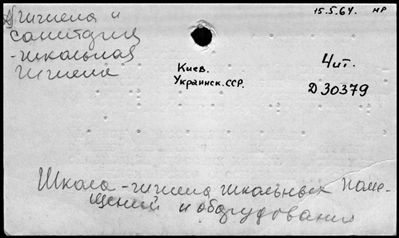 Гигиена и
санитария
-школьная
гигиена
15.5.64. нр
Киев.
Украинск.ССР.
4ит.
D 30379
Школа-гигиена школьных поме-
щений и оборудования